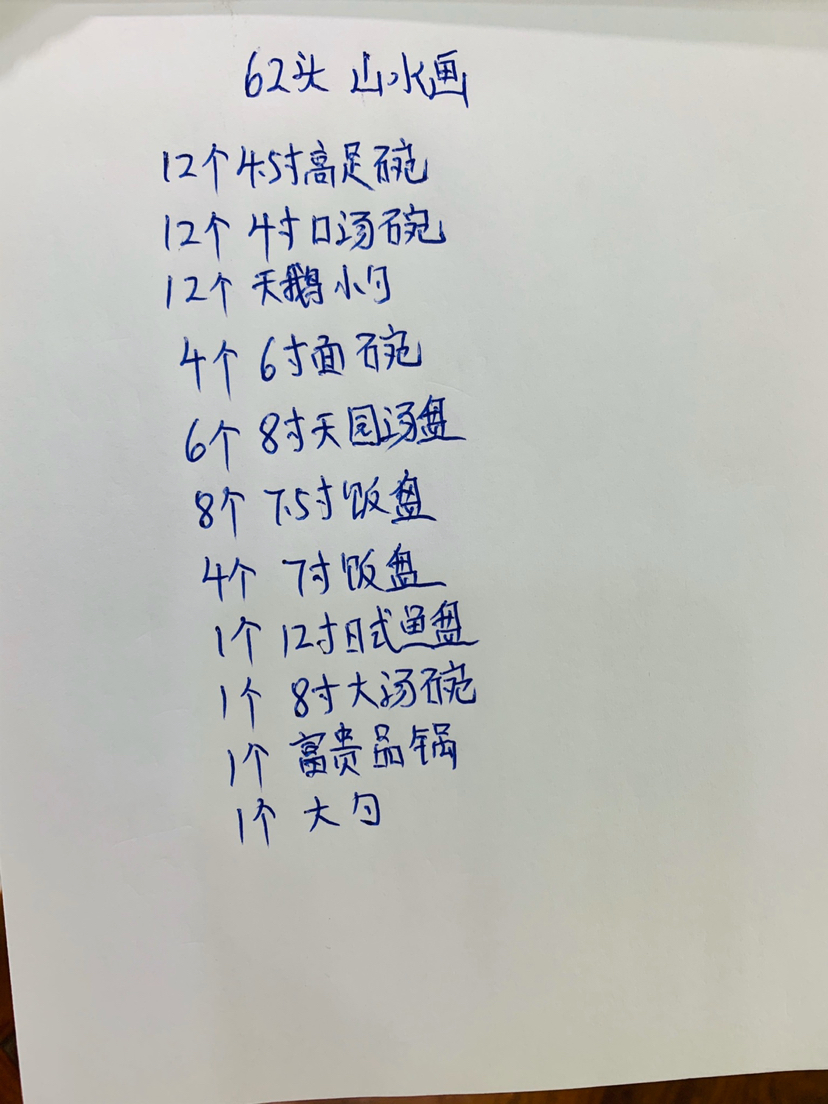 62头 山水画
12个 4.5寸高足碗
12个 4寸口汤碗
12个 天鹅小勺
4个 6寸面碗
6个 8寸天园汤盘
8个 7.5寸饭盘
4个 7寸饭盘
1个 12寸日式鱼盘
1个 8寸大汤碗
1个 富贵品锅
1个 大勺